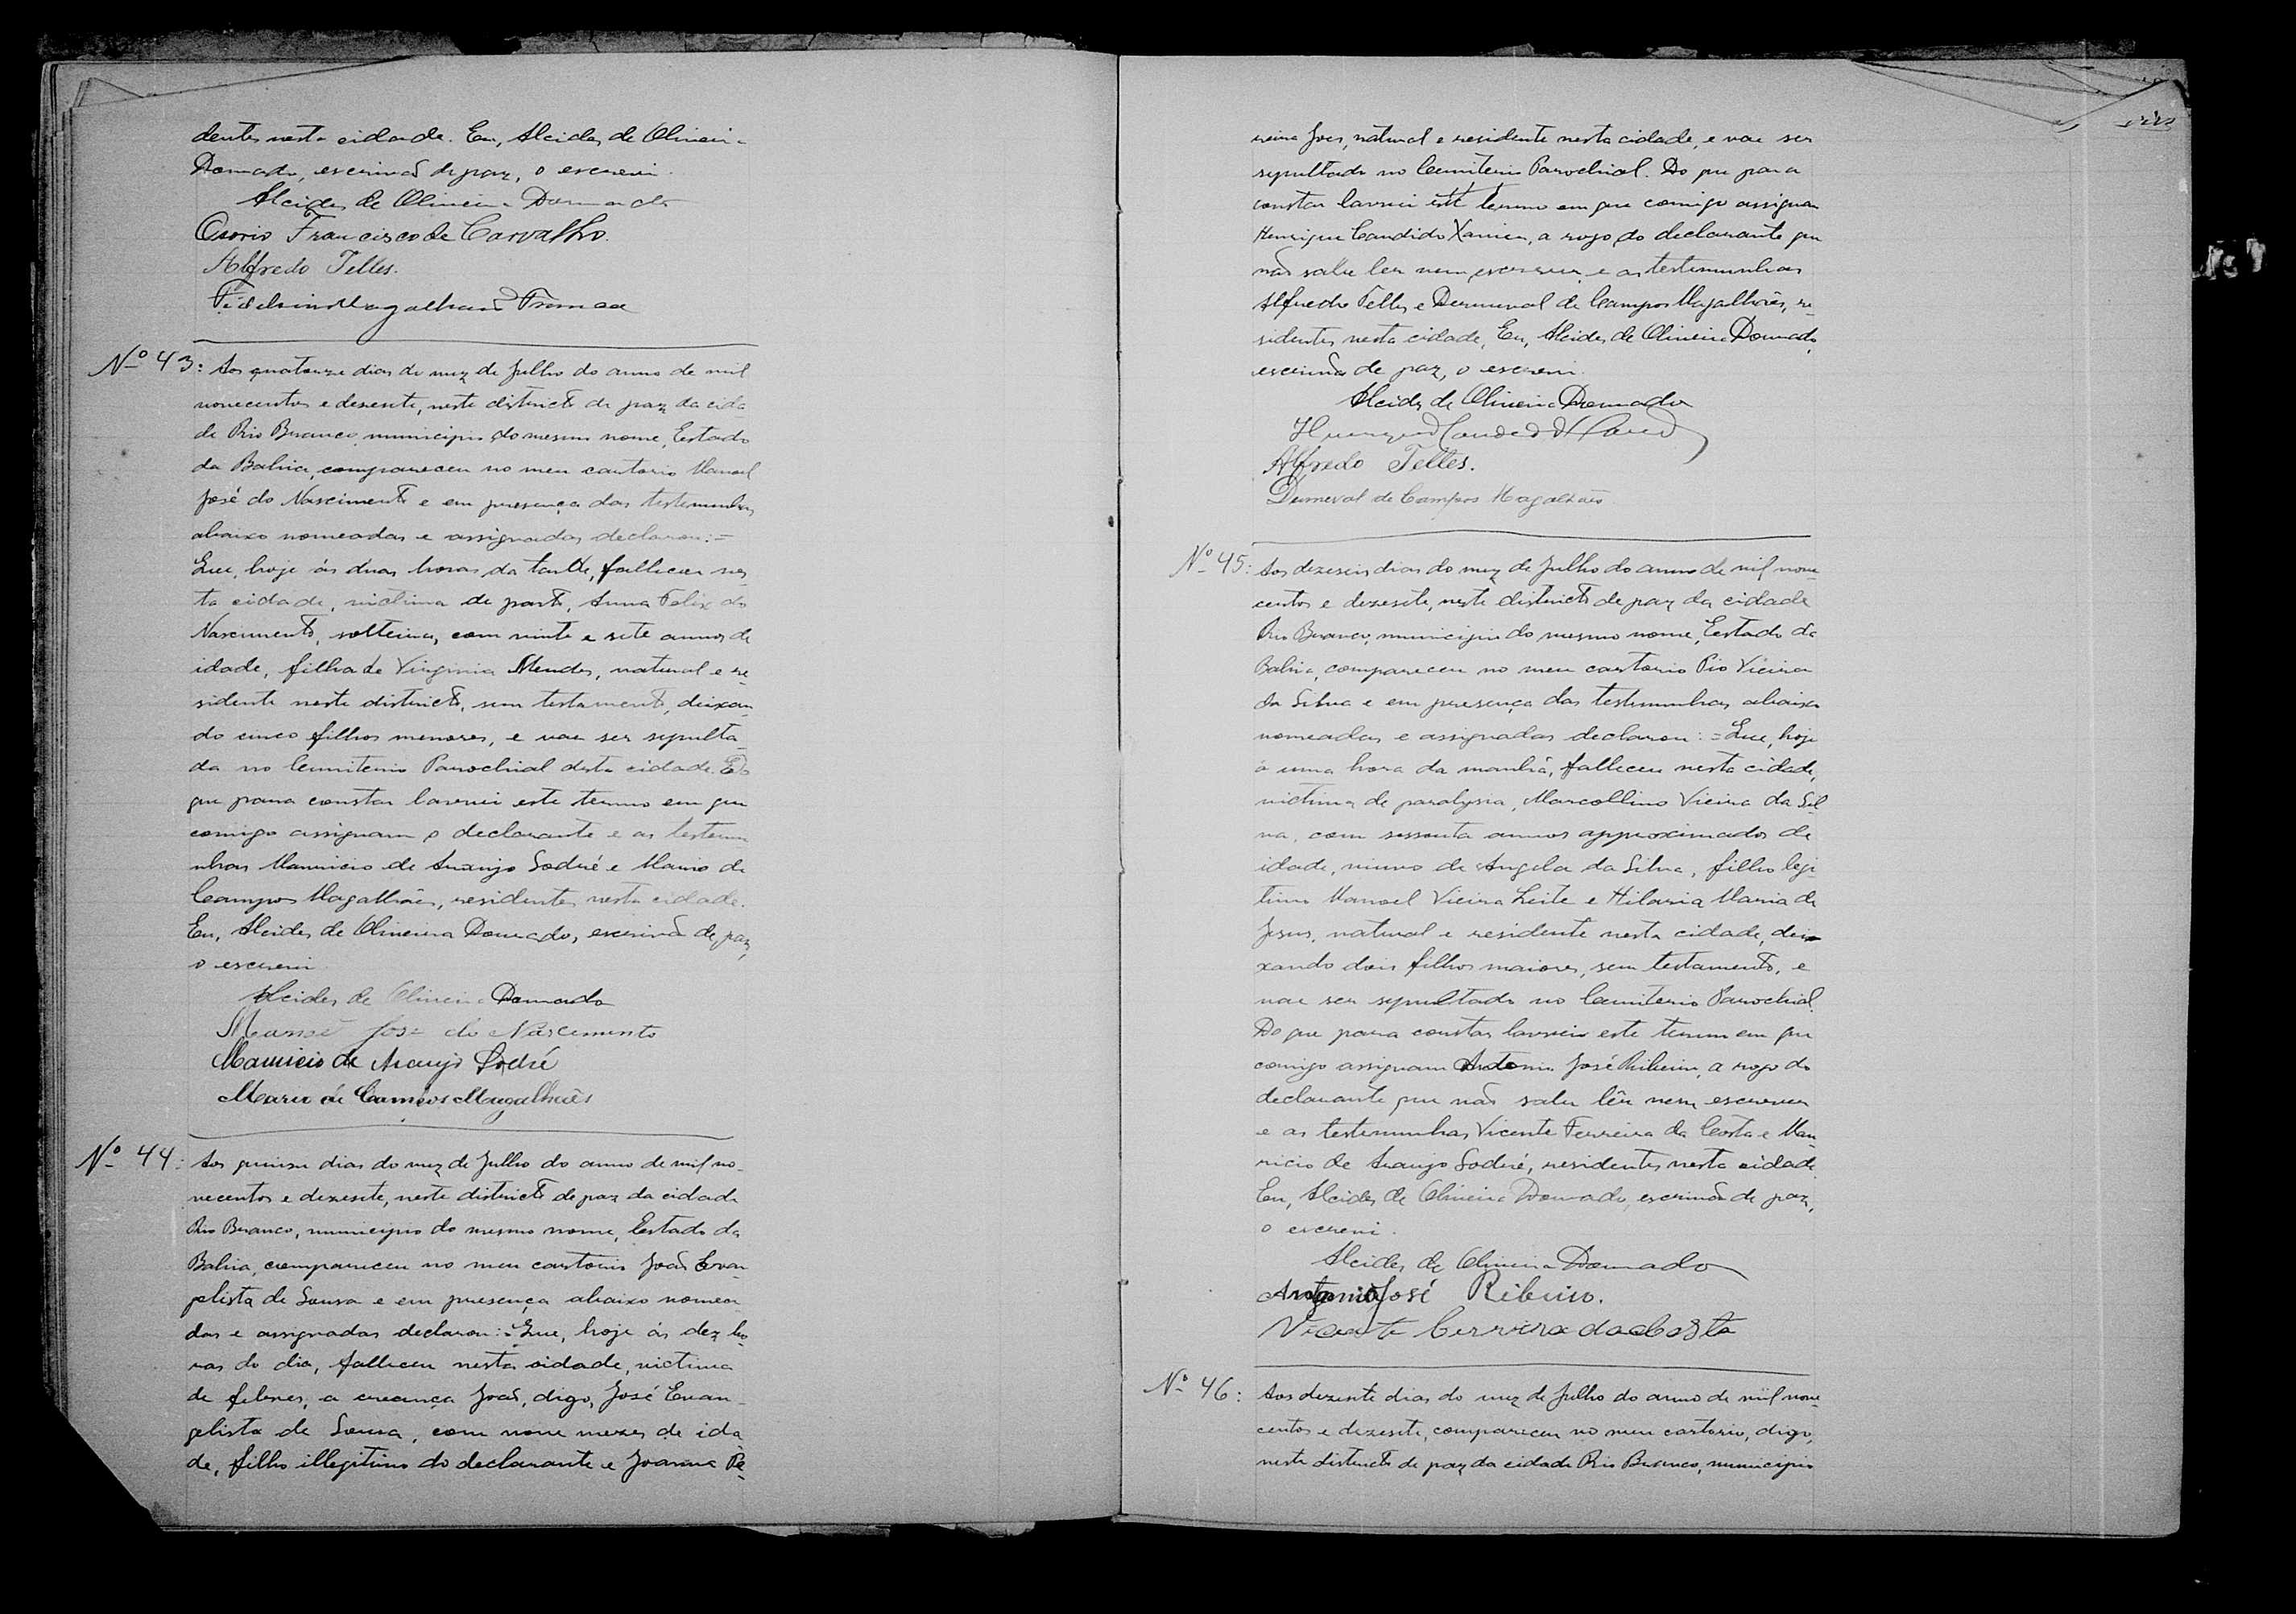 dentes nesta cidade. Eu, Alcides de Oliveira
Dourado, escrivão de paz, o escrevi.
Alcides de Oliveira Dourado
Osorio Francisco de Carvalho.
Alfredo Telles.
Magalhães França
Nº 43: Aos quatorze dias do mez de Julho do anno de mil
novecentos e desesete, neste districto de paz da cida
de Rio Branco, municipio do mesmo nome, Estado
da Bahia, compareceu no meu cartorio Manoel
José do Nascimento e em presença das testemunhas
abaixo nomeadas e assignadas declarou:=
Que, hoje ás duas horas da tarde, falleceu nes
ta cidade, victima de parto, Anna Felix do
Nascimento, solteira, com vinte e sete annos de
idade, filha de Virginia Mendes, natural e re-
sidente neste districto, sem testamento, deixan
do cinco filhos menores, e vae ser sepulta
da no Cemiterio Parochial desta cidade. Do
que para constar lavrei este termo em que
comigo assignam o declarante e as testemu
nhas Mauricio de Araujo Sodré e Mario de
Campos Magalhães, residentes nesta cidade.
Eu, Alcides de Oliveira Dourado, escrivão de paz,
o escrevi
Alcides de Oliveira Dourado
Manoel José do Nascimento
Mauricio de Araujo Sodré
Mario de Campos Magalhães
Nº 44: Aos quinze dias do mez de Julho do anno de mil no-
vecentos e dezesete, neste districto de paz da cidade
Rio Branco, municipio do mesmo nome, Estado da
Bahia, compareceu no meu cartorio João Evan
gelista de Sousa e em presença abaixo nomea
das e assignadas declarou:=Que, hoje ás dez ho
ras do dia, falleceu nesta cidade, victima
de febres, a creança João, digo, José Evan-
gelista de Sousa, com nove mezes de ida
de, filho illegitimo do declarante e Joanna Pe-
reira natural e residente nesta cidade, e vae ser
sepultado no Cemiterio Parochial. Do que para
constar lavrei este termo em que comigo assignam
Henrique Candido Xavier, a rogo do declarante que
não sabe ler nem escrever e as testemunhas
Alfredo Telles e Dermeval de Campos Magalhães, re-
sidentes nesta cidade, Eu, Alcides de Oliveira Dourado,
escrivão de paz, o escrevi.
Alcides de Oliveira Dourado
Henrique Candido Xavier
Alfredo Telles.
Dermeval de Campos Magalhães
Nº 45: Aos dezeseis dias do mez de Julho do anno de mil nove-
centos e dezesete, neste districto de paz da cidade
Rio Branco, municipio do mesmo nome, Estado da
Bahia, compareceu no meu cartorio Pio Vieira
da Silva e em presença das testemunhas abaixo
nomeadas e assignadas declarou:=Que, hoje
á uma hora da manhã, falleceu nesta cidade,
victima de paralysia, Marcollino Vieira da Sil
va, com sessenta annos approximados de
idade, viuvo de Angela da Silva, filho legi-
timo Manoel Vieira Leite e Hilaria Maria de
Jesus, natural e residente nesta cidade, dei
xando dois filhos maiores, sem testamento, e
vae ser sepultado no Cemiterio Parochial.
Do que para constar lavrei este termo em que
comigo assignam Antonio José Ribeiro, a rogo do
declarante que não sabe lêr nem escrever
e as testemunhas Vicente Ferreira da Costa e Mau
ricio de Araujo Sodré, residentes nesta cidade
Eu, Alcides de Oliveira Dourado, escrivão de paz,
o escrevi.
Alcides de Oliveira Dourado
Antonio José Ribeiro.
Vicente Ferreira da Costa
Nº 46: Aos dezesete dias do mez de Julho do anno de mil nove-
centos e dezesete, compareceu no meu cartorio, digo,
neste districto de paz da cidade Rio Branco, municipio